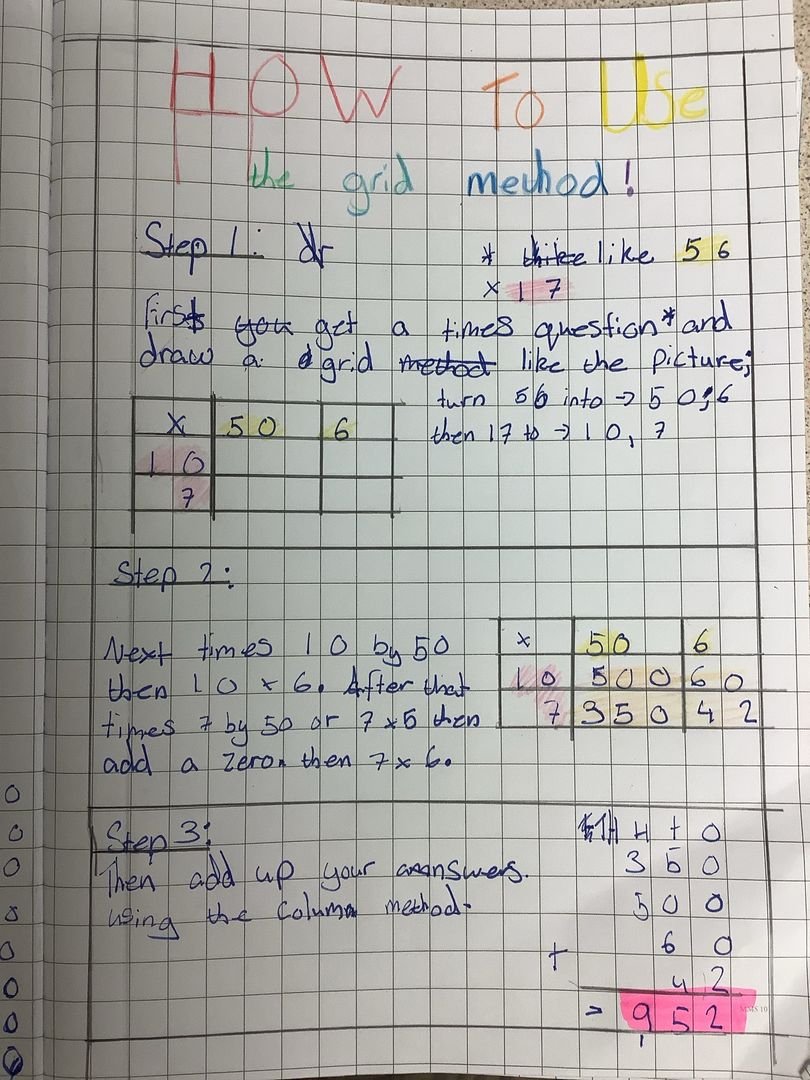 HOW TO USe
the grid method!
Step 1: dr
* like 56
× 17
First you get a times question* and
draw a grid method like the picture;
turn 56 into → 50, 6
then 17 to → 10, 7
× 50 6
10
7
Step 2:
Next times 10 by 50
then 10 × 6. After that
times 7 by 50 or 7 × 5 then
add a zero. then 7 × 6.
× 50 6
10 500 60
7 350 42
Step 3:
Then add up your answers.
using the column method.
TH H t O
350
500
60
+ 42
= 952
1